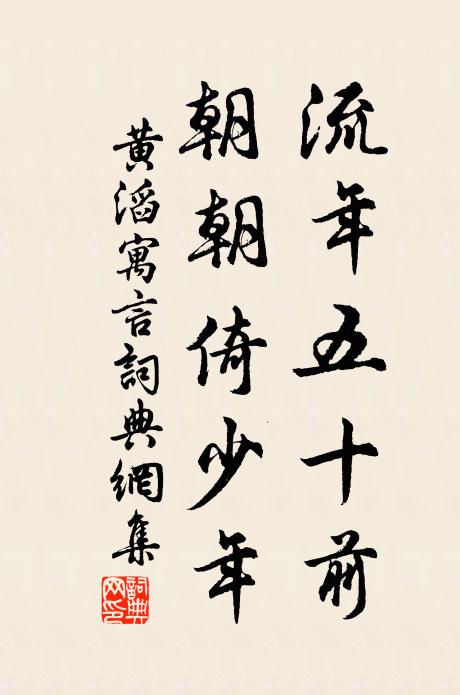 流年五十前
朝朝倚少年
黄滔寓言詞典網集
詞典网印